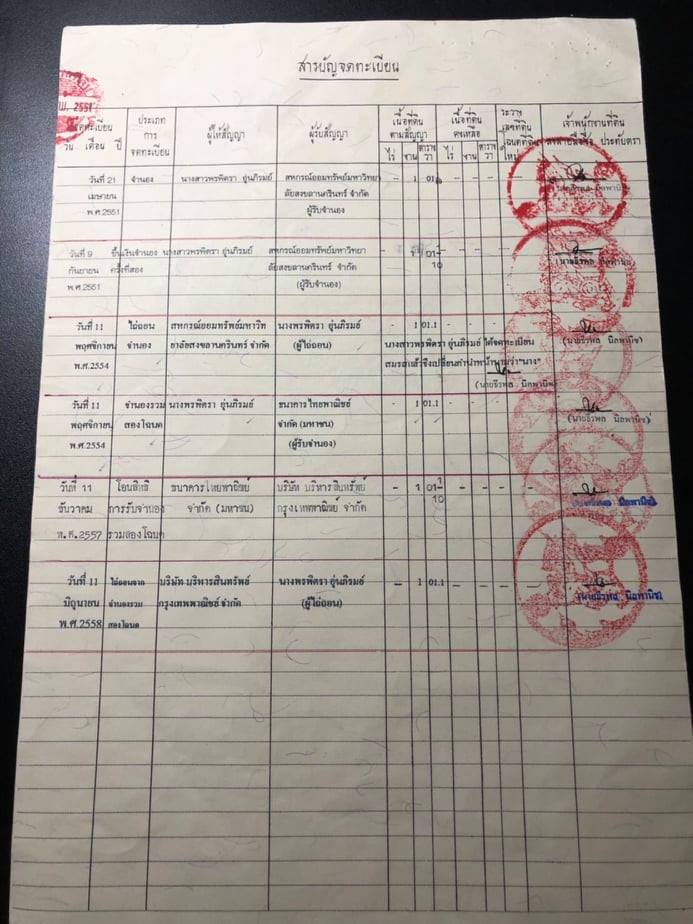 สารบัญจดทะเบียน
พ. 2551
จดทะเบียน ประเภท ผู้ให้สัญญา ผู้รับสัญญา เนื้อที่ดิน เนื้อที่ดิน ระวาง เจ้าพนักงานที่ดิน
วัน เดือน ปี การ ตามสัญญา คงเหลือ เลขที่ดิน ประทับตรา
จดทะเบียน ไร่ งาน ตารางวา ไร่ งาน ตารางวา โฉนดที่ดิน
ใหม่
วันที่ 21 จำนอง นางสาวพรพิตรา อุ่นภิรมย์ สหกรณ์ออมทรัพย์มหาวิทยา - 1 01 - - - -
เมษายน ลัยสงขลานครินทร์ จำกัด
พ.ศ.2551 ผู้รับจำนอง
วันที่ 9 ขึ้นเงินจำนอง นางสาวพรพิตรา อุ่นภิรมย์ สหกรณ์ออมทรัพย์มหาวิทยา - 1 01 1/10 - - - -
กันยายน ครั้งที่สอง ลัยสงขลานครินทร์ จำกัด (นายธีรพล นิลพานิช)
พ.ศ.2551 (ผู้รับจำนอง)
วันที่ 11 ไถ่ถอน สหกรณ์ออมทรัพย์มหาวิท นางพรพิตรา อุ่นภิรมย์ - 1 01.1 - - - -
พฤศจิกายน จำนอง ยาลัยสงขลานครินทร์ จำกัด (ผู้ไถ่ถอน) นางสาวพรพิตรา อุ่นภิรมย์ ได้จดทะเบียน (นายธีรพล นิลพานิช)
พ.ศ.2554 สมรสแล้วจึงเปลี่ยนคำนำหน้านามว่า"นาง"
(นายธีรพล นิลพานิช)
วันที่ 11 จำนองรวม นางพรพิตรา อุ่นภิรมย์ ธนาคารไทยพาณิชย์ - 1 01.1 - - - -
พฤศจิกายน สองโฉนด จำกัด (มหาชน) (นายธีรพล นิลพานิช)
พ.ศ.2554 (ผู้รับจำนอง)
วันที่ 11 โอนสิทธิ ธนาคารไทยพาณิชย์ บริษัท บริหารสินทรัพย์ - 1 01 1/10 - - - -
ธันวาคม การรับจำนอง จำกัด (มหาชน) กรุงเทพพาณิชย์ จำกัด นายธีรพล นิลพานิช
พ.ศ.2557 รวมสองโฉนด
วันที่ 11 ไถ่ถอนจาก บริษัท บริหารสินทรัพย์ นางพรพิตรา อุ่นภิรมย์ - 1 01.1 - - - -
มิถุนายน จำนองรวม กรุงเทพพาณิชย์ จำกัด (ผู้ไถ่ถอน) (นายธีรพล นิลพานิช)
พ.ศ.2558 สองโฉนด